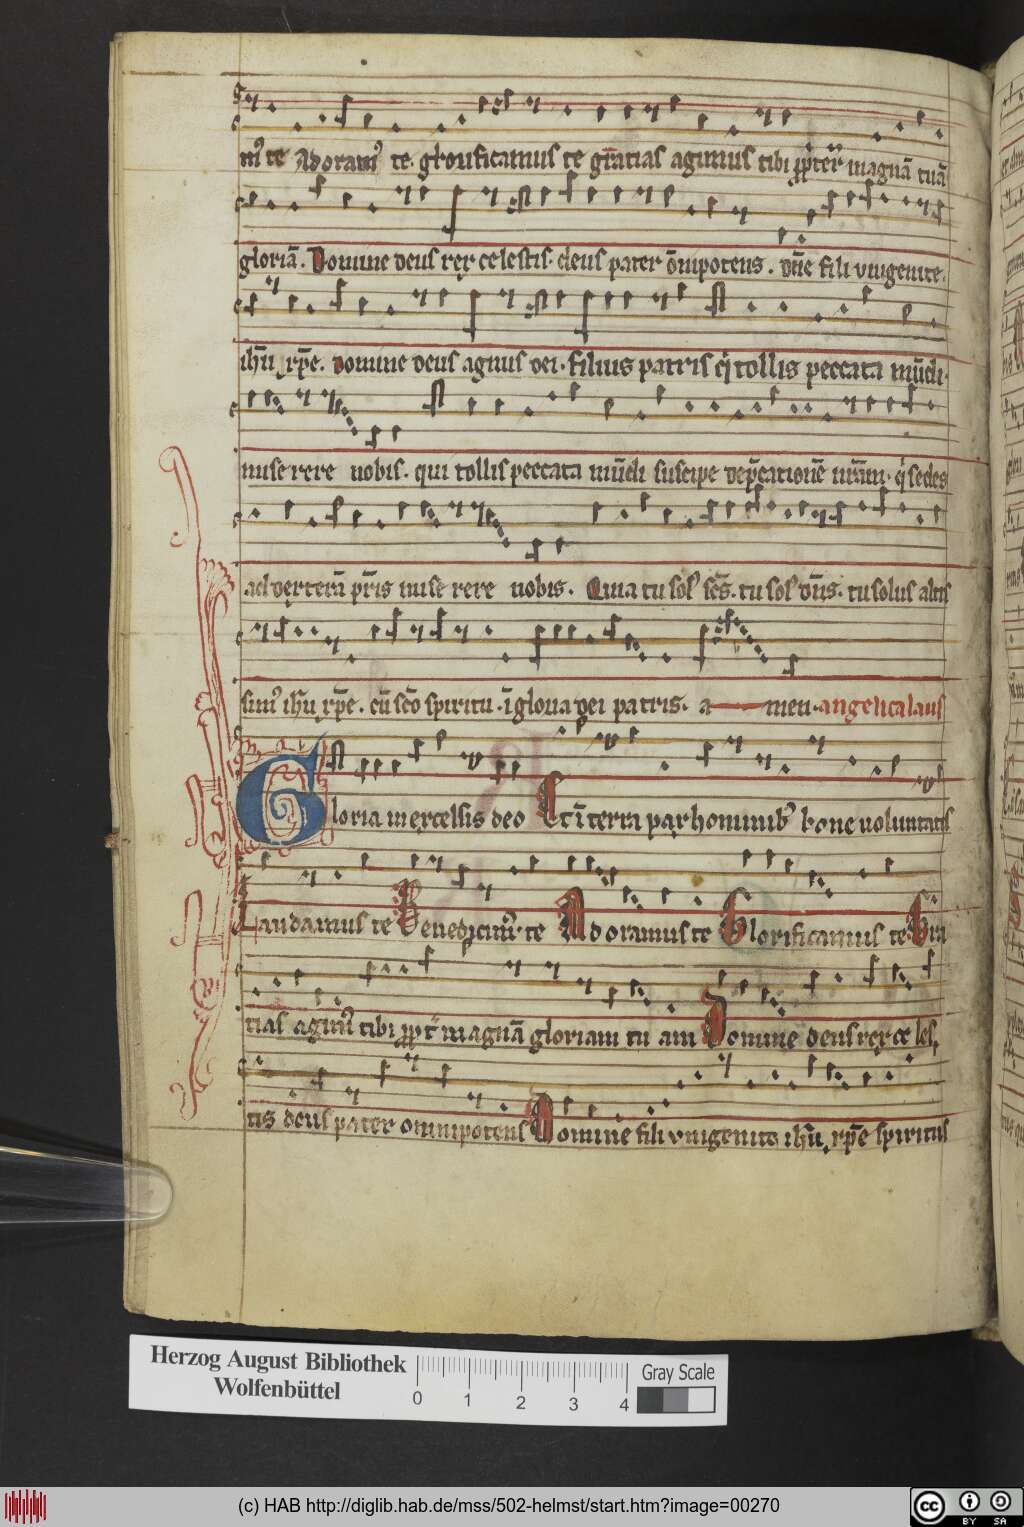 m᷒ te Adoram᷒ te. glorificamus te gr̄atias agimus tibi ꝓpter magnā tuā
gloriā. Domine deus rex celestis. deus pater ōmipotens. dn̄e fili vnigenite.
ihū xp̄e. Domine deus agnus dei. filius patris q̇ tollis peccata mūdi.
mise rere nobis. qui tollis peccata mūdi suscipe dep̄cationē nr̄am. q̇ sedes
ad dexterā pr̄is mise rere nobis. Quia tu sol᷒ sc̄s. tu sol᷒ dn̄s. tu solus altis
sim᷒ ihū xp̄e. cū sc̄o spiritu. ī gloria dei patris. a men. angelica laus
Gloria in excelsis deo Et ī terra pax hominib᷒ bone uoluntatis
Laudamus te Benedicim᷒ te Adoramus te Glorificamus te Gra
tias agim᷒ tibi ꝓpt̄ magnā gloriam tu am Domine deus rex ce les
tis deus pater omnipotens Domine fili vnigenite ihū xp̄e spiritus
Herzog August Bibliothek
Wolfenbüttel
0 1 2 3 4
Gray Scale
(c) HAB http://diglib.hab.de/mss/502-helmst/start.htm?image=00270
cc BY SA